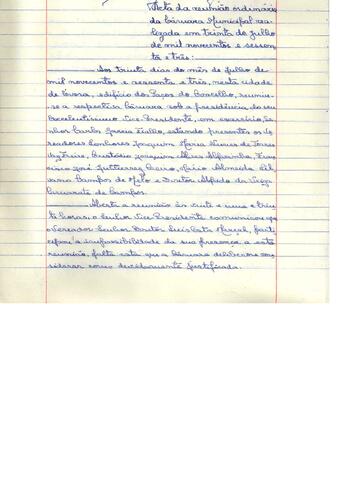 Acta da reunião ordinária
da Câmara Municipal rea-
lizada em trinta de Julho
de mil novecentos e sessen-
ta e três:
Aos trinta dias do mês de Julho de
mil novecentos e sessenta e três, nesta cidade
de Évora, edifício dos Paços do Concelho, reuniu-
se a respectiva Câmara sob a presidência do seu
Excelentíssimo Vice-Presidente, em exercício, Se-
nhor Carlos estando presentes os ve-
readores Senhores Joaquim Maria Nunes de Torres
Joaquim Fran-
cisco José Mário Almeida
Campos de Melo e Doutor Alfredo da
de Campos.
Aberta a reunião às vinte e uma e trin-
ta horas, o Senhor Vice-Presidente comunicou que
o Vereador Senhor Doutor Luis partici-
pou a impossibilidade da sua presença a esta
reunião, falta esta que a Câmara deliberou con-
siderar como devidamente justificada.